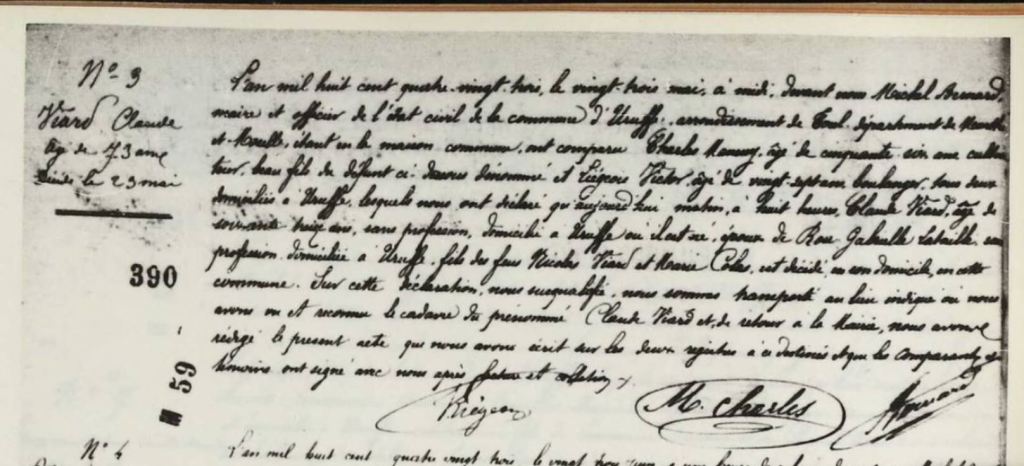 N° 3
Viard Claude
âgé de 73 ans
décédé le 23 mai
390
M 59
L'an mil huit cent quatre-vingt-trois, le vingt-trois mai, à midi, devant nous Michel Bernard,
maire et officier de l'état civil de la commune d'Uruffe, arrondissement de Toul, département de Meurthe
et Moselle, étant en la maison commune, ont comparu Charles âgé de cinquante six ans culti
teur, beau fils du défunt ci-dessous dénommé et Liégeois Victor, âgé de vingt sept ans boulanger, tous deux
domiciliés à Uruffe, lesquels nous ont déclaré qu'aujourd'hui matin, à huit heures, Claude Viard, âgé de
soixante treize ans, sans profession, domicilié à Uruffe où il est né, époux de Rose Gabrielle Lataille, sans
profession, domiciliée à Uruffe, fils des feus Nicolas Viard et Marie Colas, est décédé, en son domicile, en cette
commune. Sur cette déclaration, nous susqualifié, nous sommes transporté au lieu indiqué où nous
avons vu et reconnu le cadavre du prénommé Claude Viard et, de retour à la Mairie, nous avons
rédigé le présent acte que nous avons écrit sur les deux registres à ce destinés et que les comparants et
témoins ont signé avec nous après lecture et collation
Liégeois M. Charles Bernard
N° 4 L'an mil huit cent quatre vingt trois le vingt trois